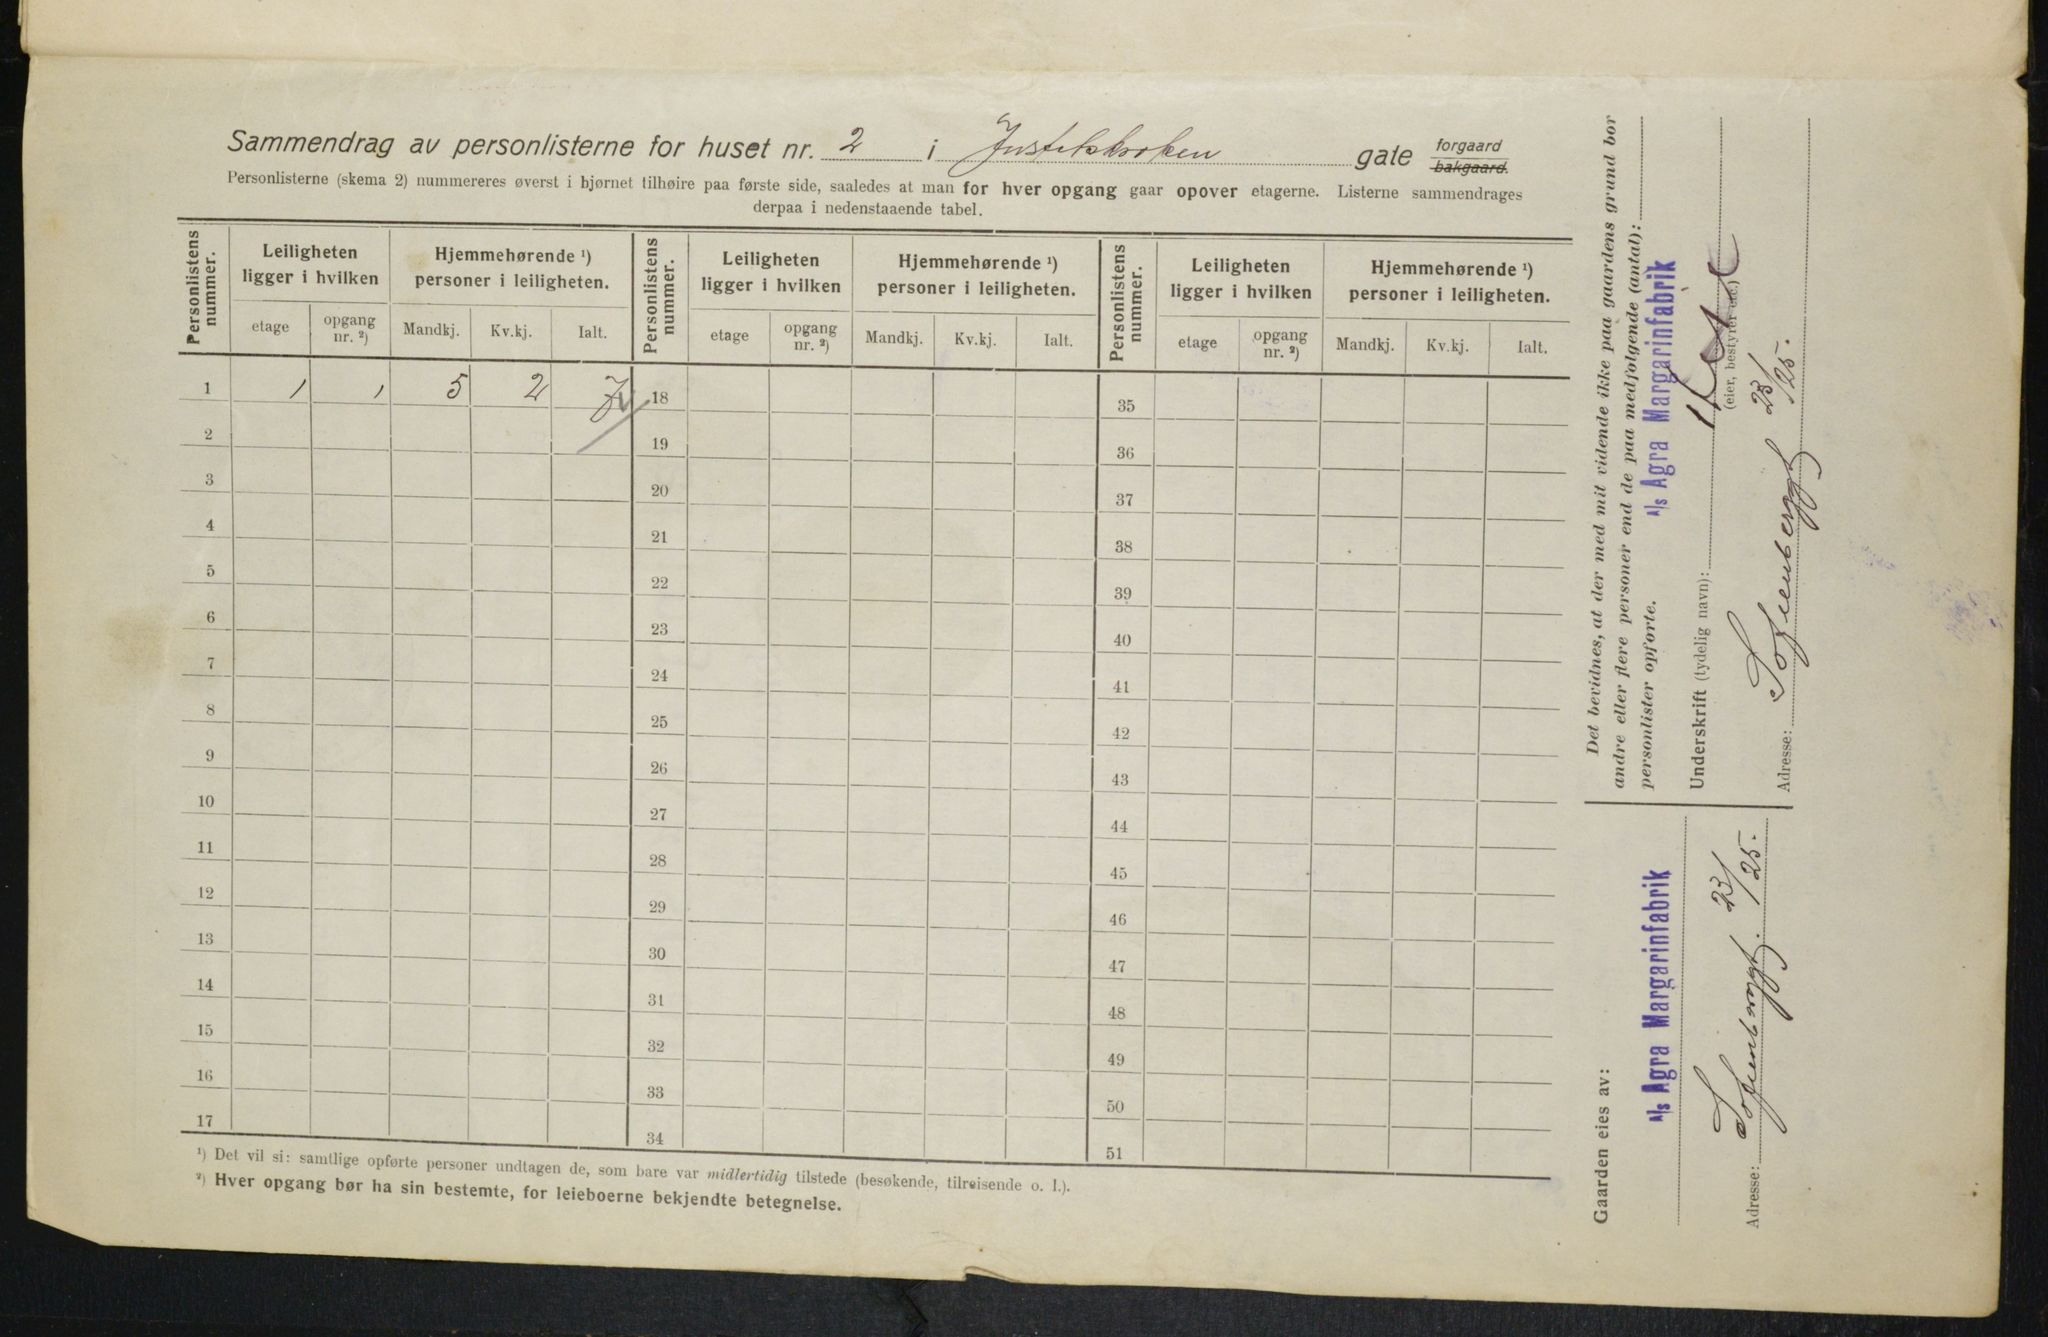 Sammendrag av personlisterne for huset nr. 2 i Justitskroken gate forgaard bakgaard.
Personlisterne (skema 2) nummereres øverst i hjørnet tilhøire paa første side, saaledes at man for hver opgang gaar opover etagerne. Listerne sammendrages
derpaa i nedenstaaende tabel.
Personlistens nummer. Leiligheten ligger i hvilken Hjemmehørende ¹) personer i leiligheten. Personlistens nummer. Leiligheten ligger i hvilken Hjemmehørende ¹) personer i leiligheten. Personlistens nummer. Leiligheten ligger i hvilken Hjemmehørende ¹) personer i leiligheten.
etage opgang nr. ²) Mandkj. Kv.kj. Ialt. etage opgang nr. ²) Mandkj. Kv.kj. Ialt. etage opgang nr. ²) Mandkj. Kv.kj. Ialt.
1 1 1 5 2 7 18 35
2 19 36
3 20 37
4 21 38
5 22 39
6 23 40
7 24 41
8 25 42
9 26 43
10 27 44
11 28 45
12 29 46
13 30 47
14 31 48
15 32 49
16 33 50
17 34 51
¹) Det vil si: samtlige opførte personer undtagen de, som bare var midlertidig tilstede (besøkende, tilreisende o. l.).
²) Hver opgang bør ha sin bestemte, for leieboerne bekjendte betegnelse.
Det bevidnes, at der med mit vidende ikke paa gaardens grund bor
andre eller flere personer end de paa medfølgende (antal):
personlister opførte.
A/s Agra Margarinfabrik
Underskrift (tydelig navn):
(eier, bestyrer etc.)
Adresse: Sofienberggt 23/25.
Gaarden eies av:
A/s Agra Margarinfabrik
Adresse: Sofienberggt. 23/25.